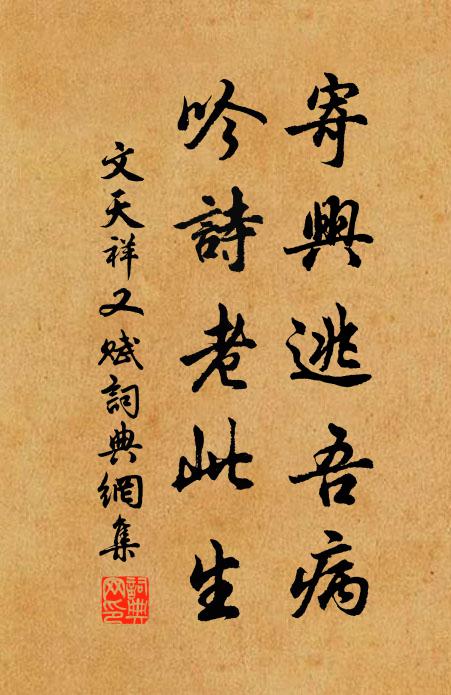 寄興逃吾病
吟詩老此生
文天祥又賦詞典網集
詞典网印